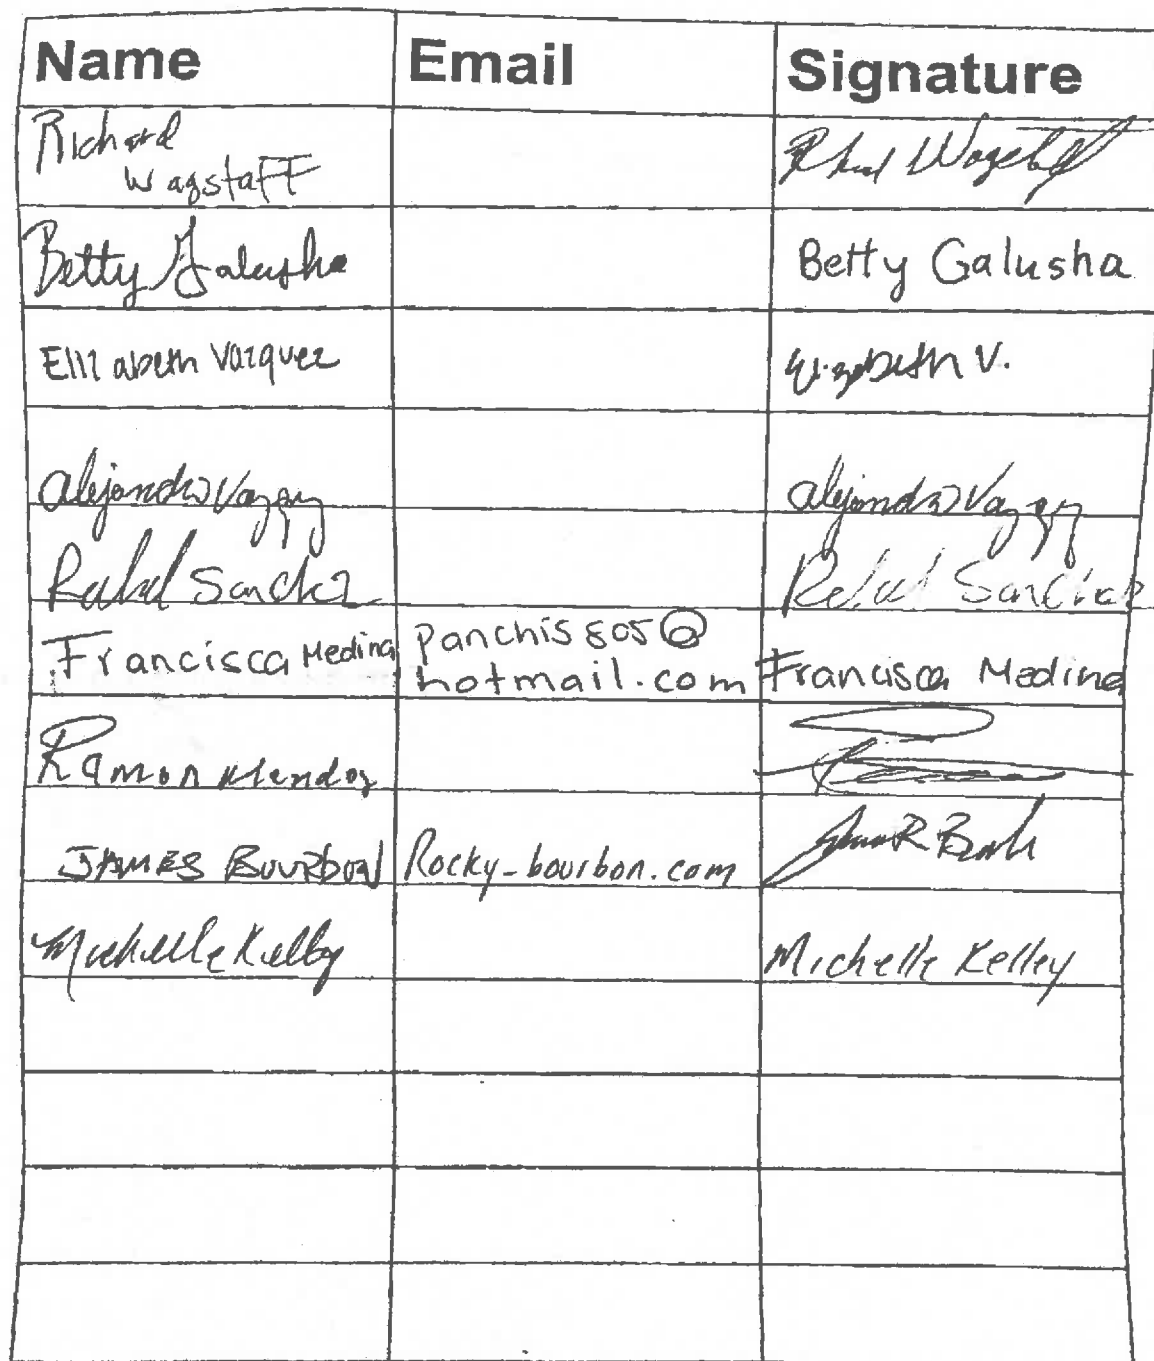 Name Email Signature
Richard
Wagstaff
Betty Galusha Betty Galusha
Elizabeth Vazquez Elizabeth V.
Alejandro Alejandro
Sanchez Sanchez
Francisca Medina panchis805@
hotmail.com Francisca Medina
Ramon Mendoz
JAMES BOURBON Rocky-bourbon.com
Michelle Kelley Michelle Kelley